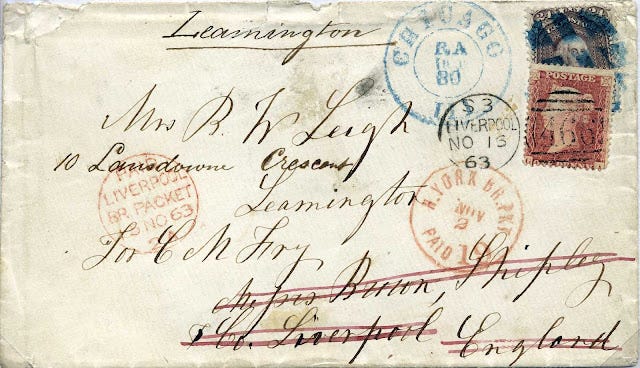 Leamington
CHICAGO
ILL
POSTAGE
466
S3
LIVERPOOL
NO 16
63
Mrs R. W Leigh
10 Lansdowne Crescent
Leamington
For C M Fry
PAID
LIVERPOOL
BR. PACKET
NO 63
N. YORK BR. PKT
NOV
PAID
Brown, Shipley
& Co. Liverpool
England